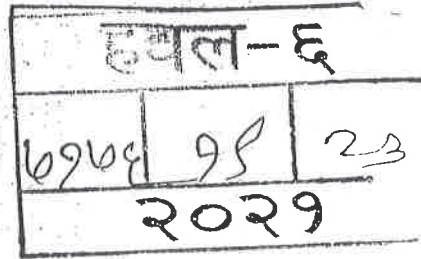 हवल-६
७१७६ १९ २३
२०२१